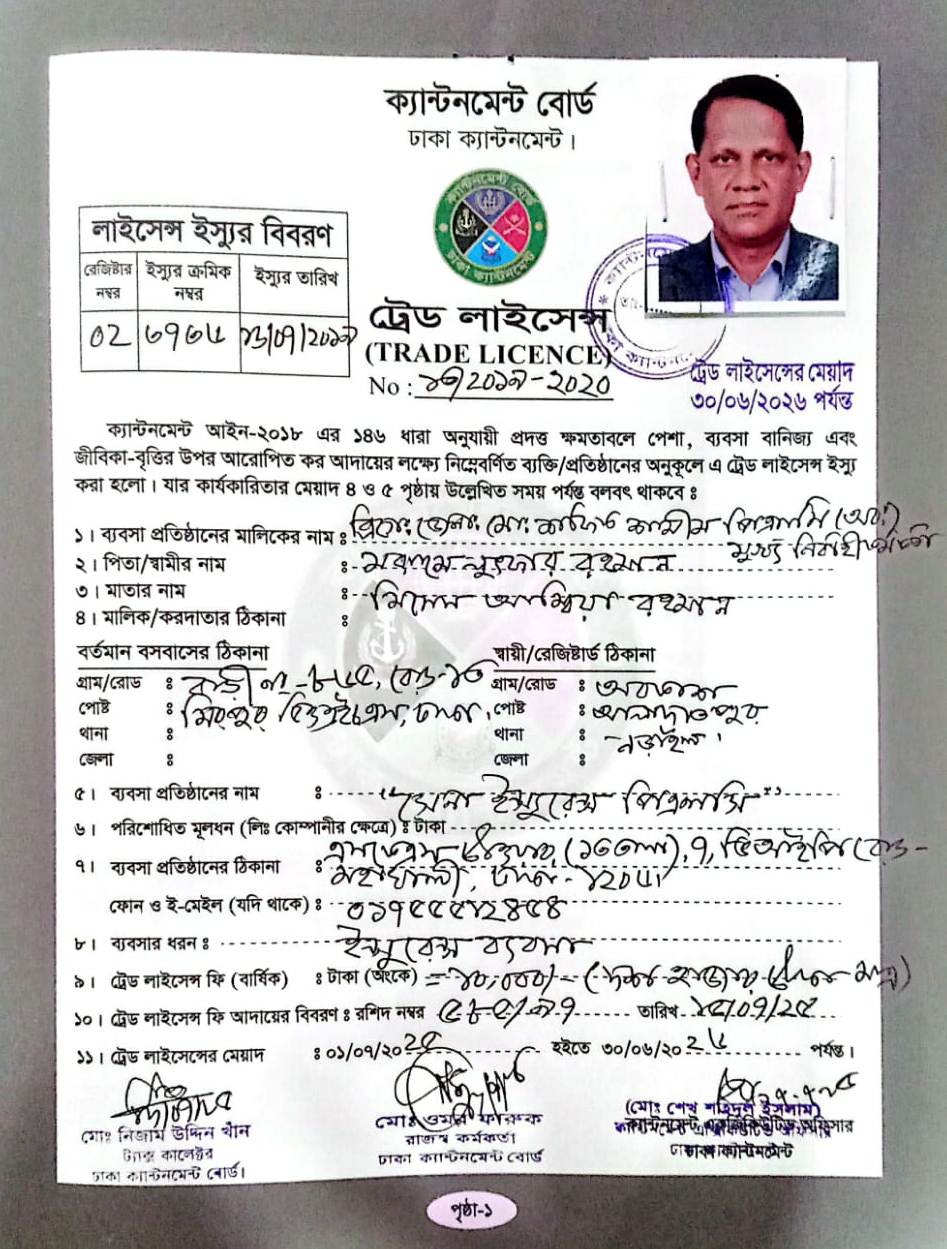 ক্যান্টনমেন্ট বোর্ড
ঢাকা ক্যান্টনমেন্ট।
ক্যান্টনমেন্ট বোর্ড
ঢাকা ক্যান্টনমেন্ট
লাইসেন্স ইস্যুর বিবরণ
রেজিষ্টার নম্বর ইস্যুর ক্রমিক নম্বর ইস্যুর তারিখ
02 ৬৭৬৫
ট্রেড লাইসেন্স
(TRADE LICENCE)
No : 2020
ট্রেড লাইসেন্সের মেয়াদ
৩০/০৬/২০২৬ পর্যন্ত
ক্যান্টনমেন্ট আইন-২০১৮ এর ১৪৬ ধারা অনুযায়ী প্রদত্ত ক্ষমতাবলে পেশা, ব্যবসা বানিজ্য এবং
জীবিকা-বৃত্তির উপর আরোপিত কর আদায়ের লক্ষ্যে নিম্নেবর্ণিত ব্যক্তি/প্রতিষ্ঠানের অনুকূলে এ ট্রেড লাইসেন্স ইস্যু
করা হলো। যার কার্যকারিতার মেয়াদ ৪ ও ৫ পৃষ্ঠায় উল্লেখিত সময় পর্যন্ত বলবৎ থাকবে ঃ
১। ব্যবসা প্রতিষ্ঠানের মালিকের নাম ঃ ব্রিগেঃ জেনাঃ মোঃ শামীম পিএসসি (অবঃ)
মুখ্য নির্বাহী
২। পিতা/স্বামীর নাম ঃ মরহুম লুৎফার রহমান
৩। মাতার নাম ঃ মিসেস আম্বিয়া রহমান
৪। মালিক/করদাতার ঠিকানা ঃ
বর্তমান বসবাসের ঠিকানা স্থায়ী/রেজিষ্টার্ড ঠিকানা
গ্রাম/রোড ঃ বাড়ী নং-৮৬৫, রোড- গ্রাম/রোড ঃ
পোষ্ট ঃ মিরপুর ডিওএইচএস, ঢাকা। পোষ্ট ঃ আলাদাতপুর
থানা ঃ থানা ঃ নড়াইল।
জেলা ঃ জেলা ঃ
৫। ব্যবসা প্রতিষ্ঠানের নাম ঃ "সেনা ইন্স্যুরেন্স পিএলসি"
৬। পরিশোধিত মূলধন (লিঃ কোম্পানীর ক্ষেত্রে) ঃ টাকা
৭। ব্যবসা প্রতিষ্ঠানের ঠিকানা ঃ এসকেএস টাওয়ার, ৭, ভিআইপি রোড-
মহাখালী, ঢাকা-১২০৬।
ফোন ও ই-মেইল (যদি থাকে) ঃ
৮। ব্যবসার ধরন ঃ ইন্স্যুরেন্স ব্যবসা
৯। ট্রেড লাইসেন্স ফি (বার্ষিক) ঃ টাকা (অংকে) = ১০,০০০/- (দশ হাজার টাকা মাত্র)
১০। ট্রেড লাইসেন্স ফি আদায়ের বিবরণ ঃ রশিদ নম্বর তারিখ
১১। ট্রেড লাইসেন্সের মেয়াদ ঃ ০১/০৭/২০২৫ হইতে ৩০/০৬/২০২৬ পর্যন্ত।
মোঃ নিজাম উদ্দিন খাঁন
ট্যাক্স কালেক্টর
ঢাকা ক্যান্টনমেন্ট বোর্ড।
মোঃ ওমর ফারুক
রাজস্ব কর্মকর্তা
ঢাকা ক্যান্টনমেন্ট বোর্ড
(মোঃ শেখ শহিদুল ইসলাম)
ক্যান্টনমেন্ট এক্সিকিউটিভ অফিসার
ঢাকা ক্যান্টনমেন্ট
পৃষ্ঠা-১